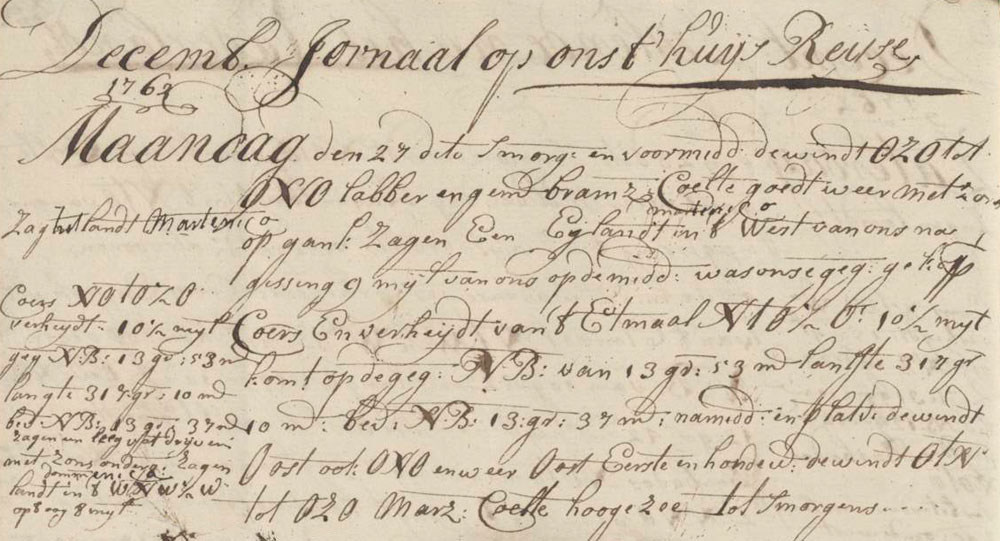 Decemb. Jornaal op onst'huijs Reijse
1762
Maandag den 27 dito smorg: en voormidd dewindt OZO tot
ONO labber en gemd bramz: Coelte goedt weer met zons
martenico
op gank: Zagen Een Eijlandt in't West van ons na
gissing 9 mijl van ons op de midd: was onse geg:
Coers En verheijdt van't Etmaal Nt0½ O: 10½ mijl
komt op de geg: NB: van 13 gr: 53 md lankte 317 gr
10 md: bed: NB: 13: gr: 37 md: namidd: en plat v: dewindt
Oost ook: ONO en weer Oost Eerste en hondew: dewindt OtN
tot OZO Marz: Coelte hooge zee tot smorgens
Zag het landt Martenico
Coers NO tot O
verheijdt: 10½ mijl
geg NB: 13 gr: 53 md
langte 317: gr: 10 md
bed: NB: 13 gr: 37 md
Zagen een leeg vat drijven
met zons onder: Zagen
domeni:ca
landt in't WNW½W
op 8 mijl